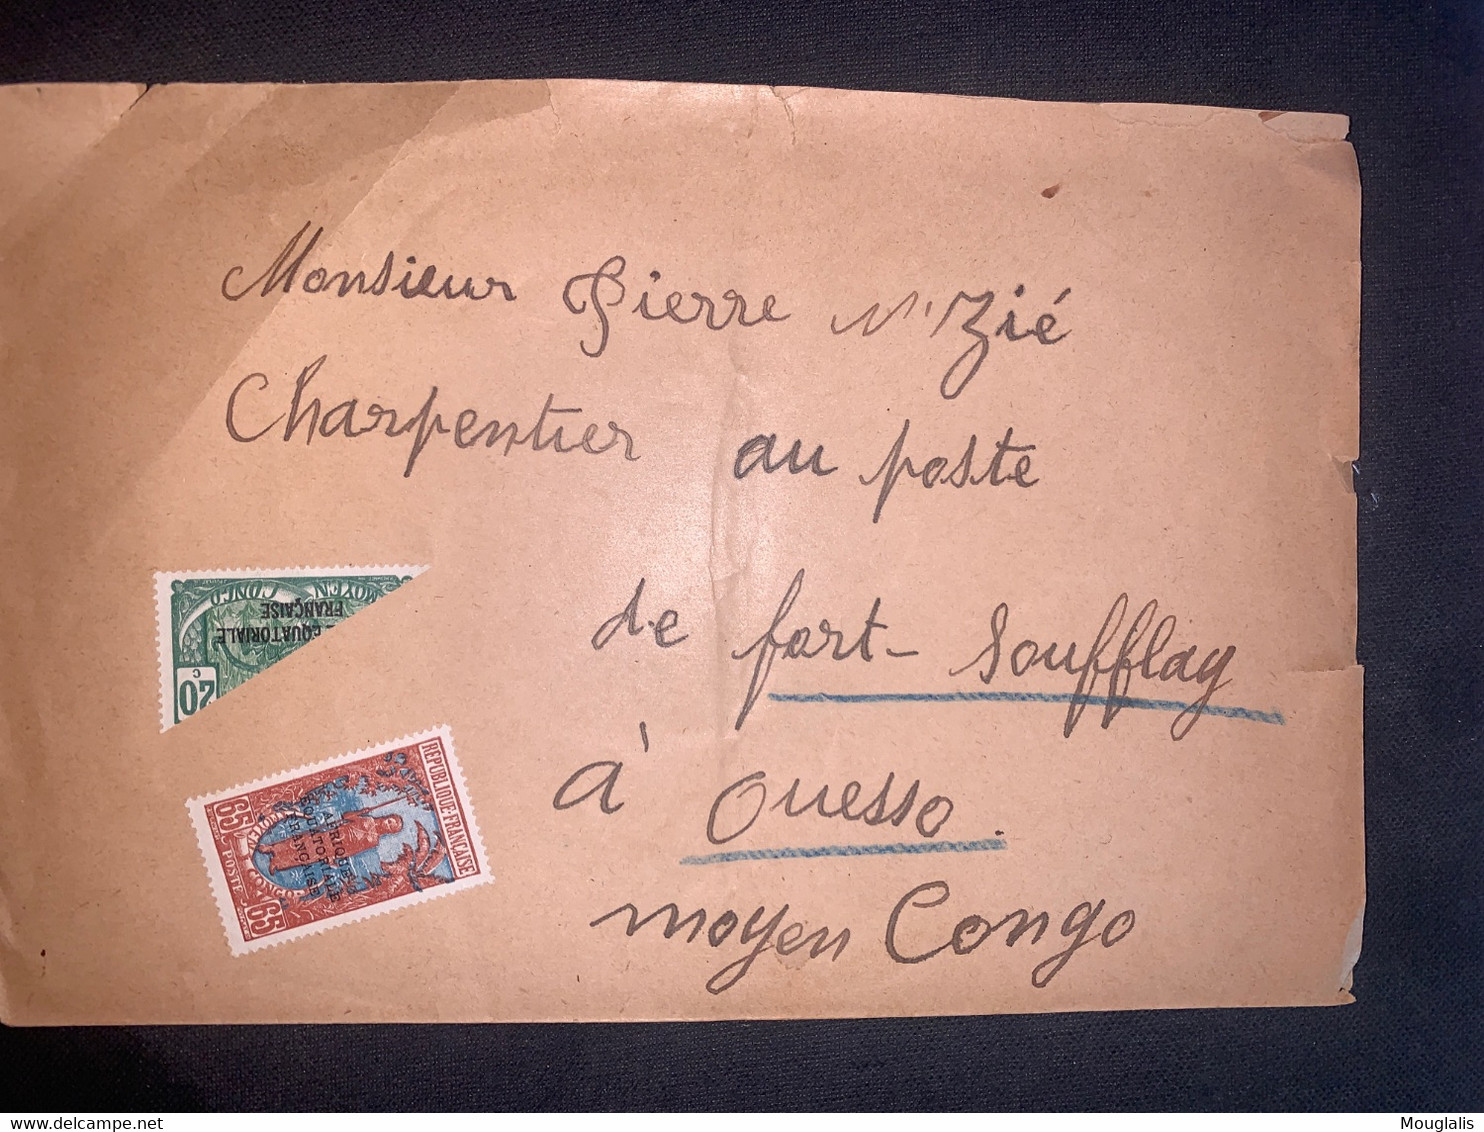 Monsieur Pierre N'Zié
Charpentier au poste
de fort-Soufflay
à Ouesso.
moyen Congo
MOYEN CONGO
EQUATORIALE
FRANÇAISE
20 c
RÉPUBLIQUE-FRANÇAISE
AFRIQUE
ÉQUATORIALE
FRANÇAISE
MOYEN CONGO
65 POSTES 65
Mouglalis